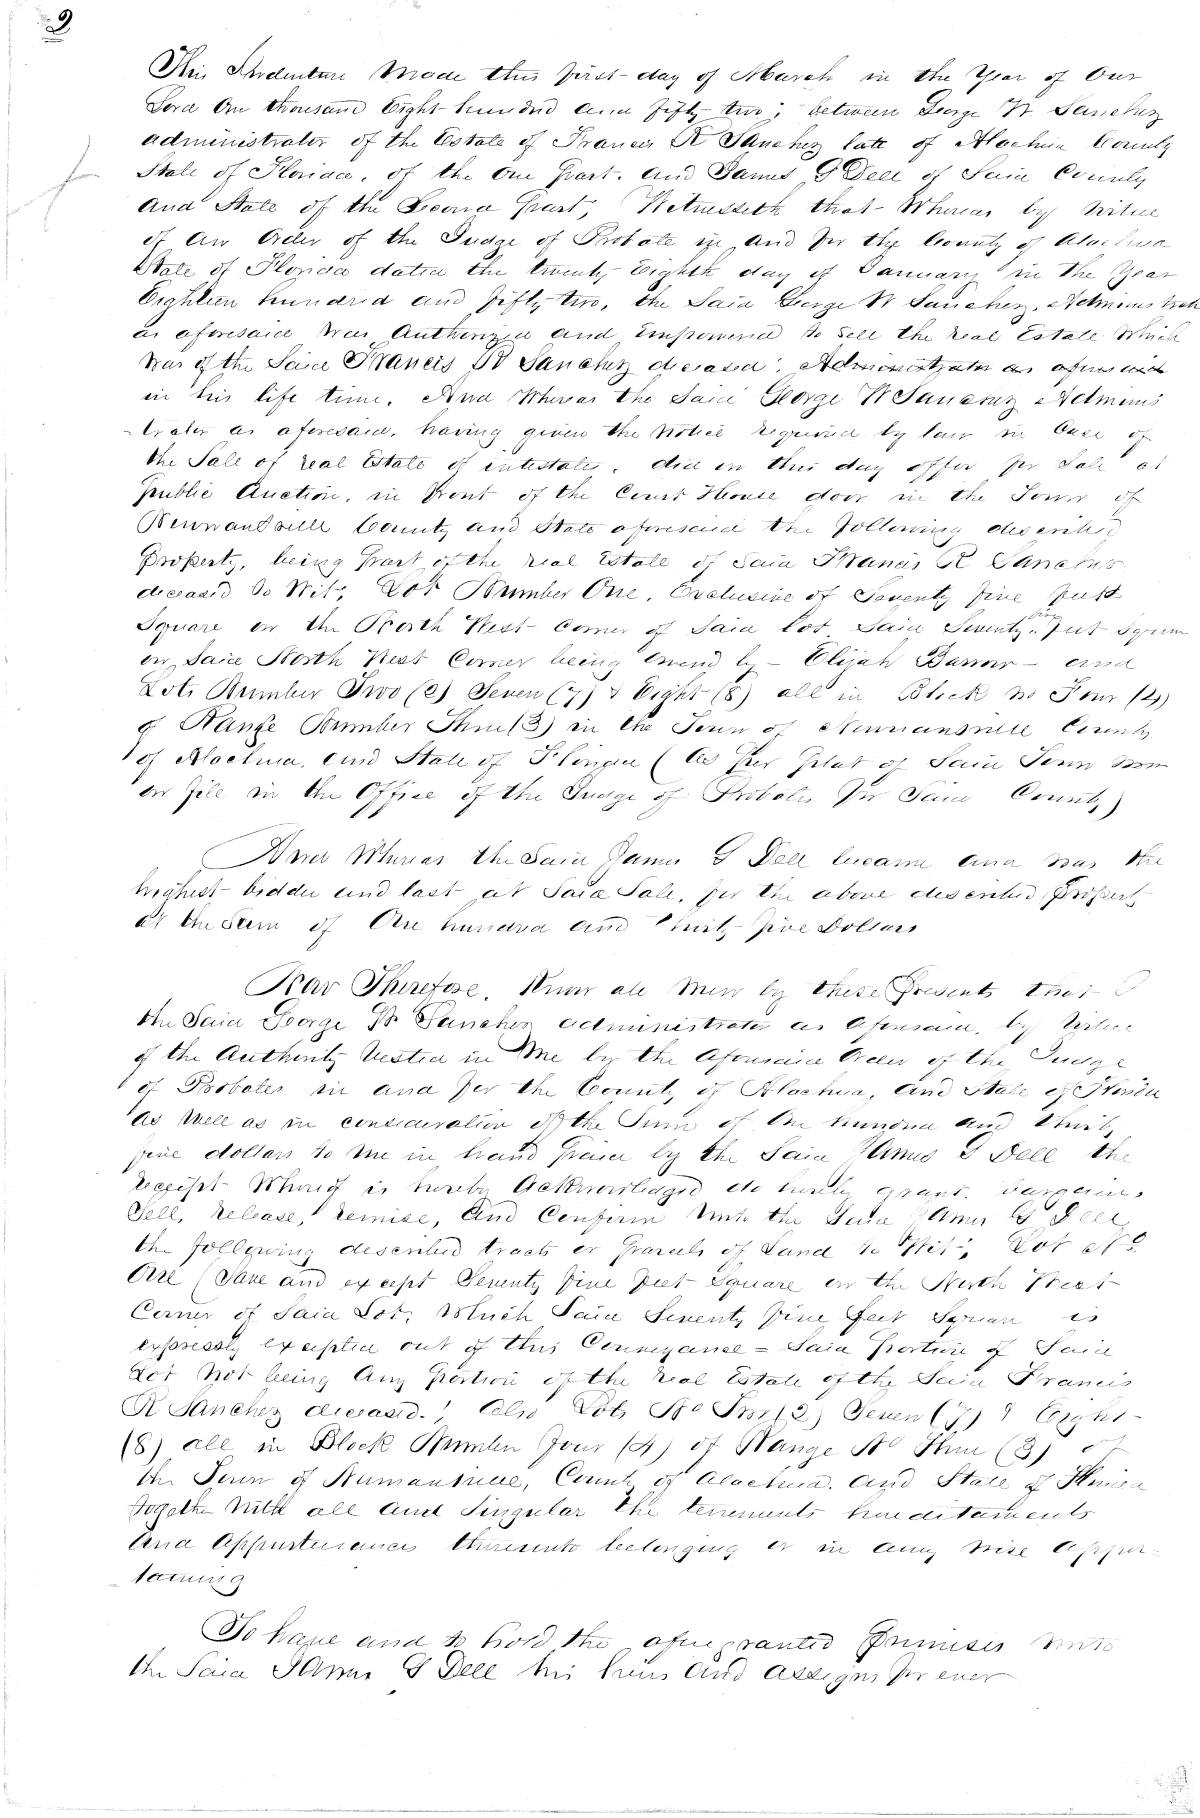 2
This Indenture Made this first day of March in the Year of Our
Lord One thousand Eight hundred and fifty two; between George W Sanchez
administrator of the Estate of Francis R Sanchez late of Alachua County
State of Florida, of the One Part. and James G Dell of Said County
and State of the Second Part, Witnesseth that Whereas by Virtue
of an Order of the Judge of Probate in and for the County of Alachua
State of Florida dated the twenty Eighth day of January in the Year
Eighteen hundred and fifty two, the Said George W Sanchez, Administrator
as aforesaid Was Authorized and Empowered to Sell the real Estate Which
Was of the Said Francis R Sanchez deceased: Administrator as aforesaid
in his life time. And Whereas the Said George W Sanchez Adminis
-trator as aforesaid, having given the Notice required by law in Case of
the Sale of real Estate of intestates, did on this day offer for Sale at
Public Auction, in front of the Court House door in the Town of
Newnansville County and State aforesaid the following described
Property, being Part of the real Estate of Said Francis R Sanchez
deceased to Wit; Lot Number One, Exclusive of Seventy five feet
Square on the North West Corner of Said lot Said Seventy five Feet Square
on Said North West Corner being owned by - Elijah - and
Lots Number Two (2) Seven (7) & Eight (8) all in Block No Four (4)
of Range Number Three (3) in the Town of Newnansville County
of Alachua, and State of Florida (As Per Plat of Said Town now
on file in the Office of the Judge of Probates for Said County)
And Whereas the Said James G Dell became and was the
highest bidder and last at Said Sale, for the above described Property
at the Sum of One hundred and thirty five Dollars
Now Therefore, Know all Men by these Presents that I
the Said George W Sanchez administrator as aforesaid, by Virtue
of the Authority Vested in Me by the aforesaid Order of the Judge
of Probates in and for the County of Alachua, and State of Florida
as Well as in consideration of the Sum of One hundred and thirty
five dollars to Me in hand Paid by the Said James G Dell the
receipt Whereof is hereby Acknowledged do hereby grant, bargain,
Sell, release, remise, and Confirm Unto the Said James G Dell,
the following described tracts or Parcels of Land to Wit; Lot No
One (Save and except Seventy five feet Square on the North West
Corner of Said Lot, Which Said Seventy five feet Square is
expressly excepted out of this Conveyance = Said Portion of Said
Lot Not being Any Portion of the real Estate of the Said Francis
R Sanchez deceased.) Also Lots No Two (2) Seven (7) & Eight
(8) all in Block Number Four (4) of Range No Three (3) of
the Town of Newnansville, County of Alachua. and State of Florida
together With all and Singular the tenements hereditaments
and Appurtenances thereunto belonging or in any wise apper-
-taining
To have and to hold the afore granted Premises unto
the Said James G Dell his heirs and assigns for ever